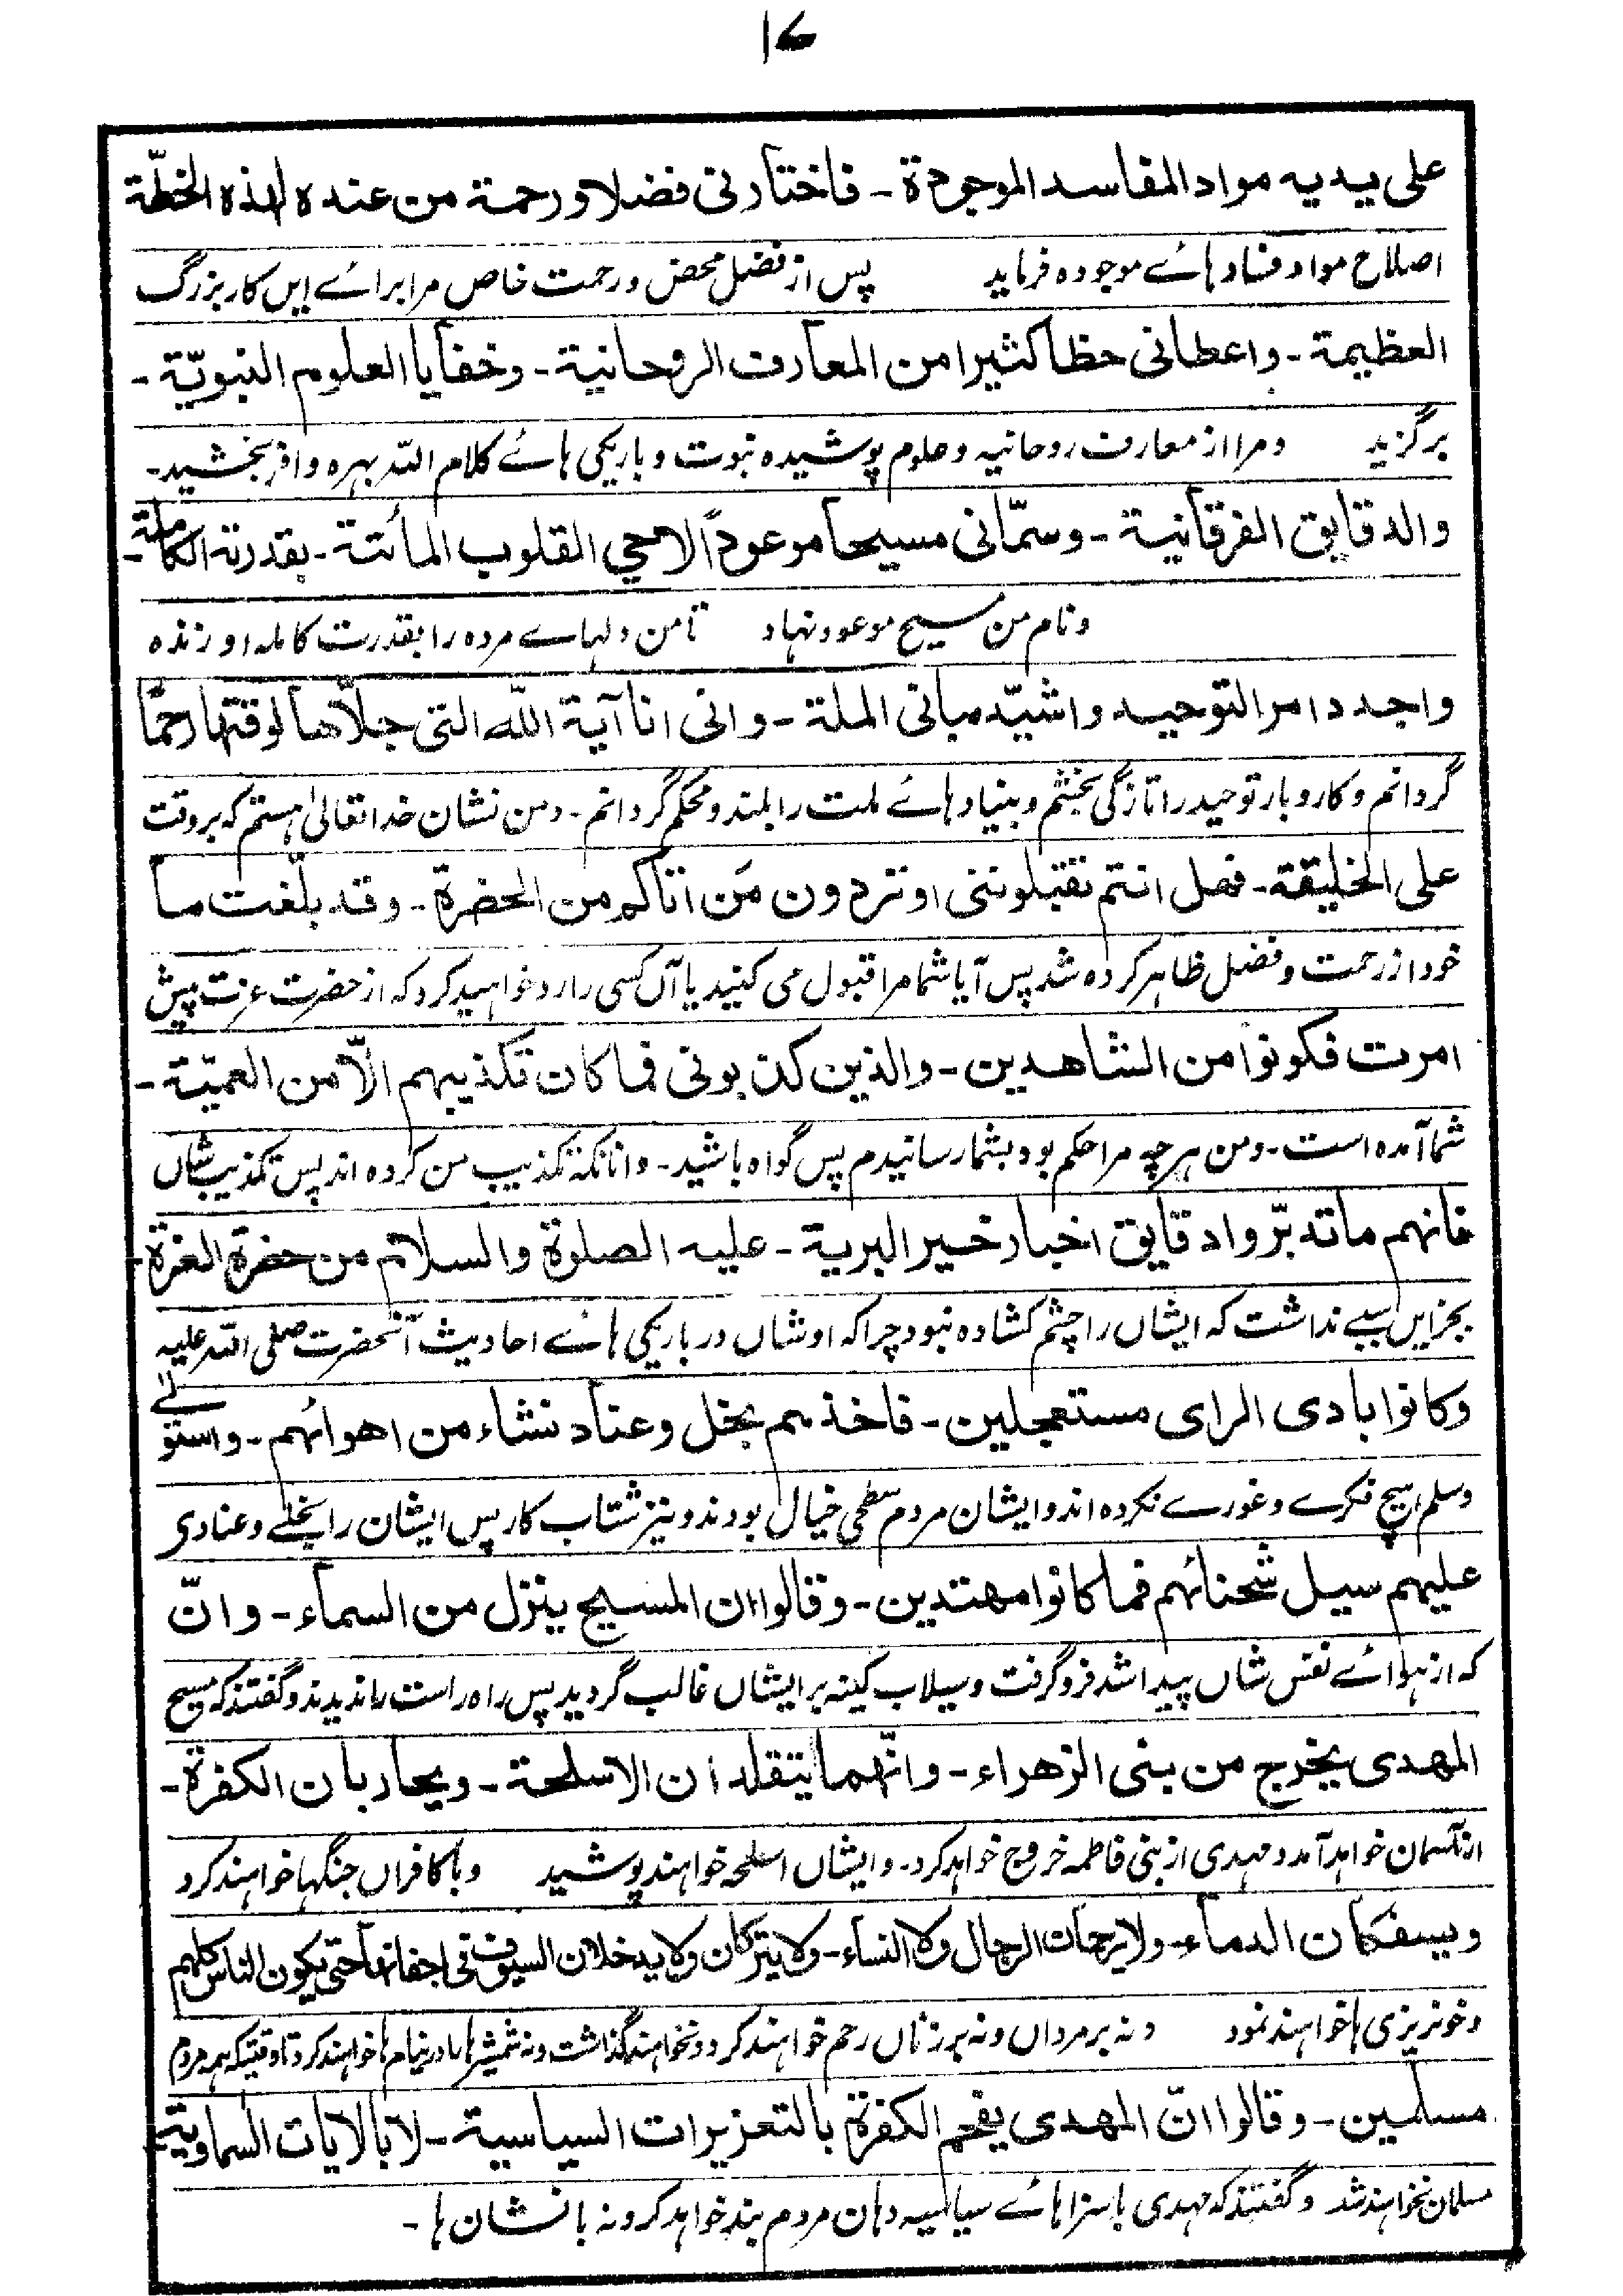 ۱۷
على يديه مواد المفاسد الموجودة۔ فاختارنى فضلا و رحمة من عنده لهذه الخطّة
اصلاح مواد فساد ہائے موجودہ فرماید پس از فضل محض و رحمت خاص مرا برائے ایں کار بزرگ
العظيمة۔ واعطانى حظا كثيرا من المعارف الروحانية۔ وخفايا العلوم النبويّة۔
برگزید و مرا از معارف روحانیہ و علوم پوشیدہ نبوت و باریکی ہائے کلام اللہ بہرہ وافر بخشید۔
والدقايق الفرقانية۔ وسمّانى مسيحا موعودًا لاحيي القلوب المائتة۔ بقدرته الكاملة۔
و نام من مسیح موعود نہاد تا من دلہائے مردہ را بقدرت کاملہ او زندہ
واجدد امر التوحيد واشيّد مبانى الملة۔ وانى انا آية اللّٰه التى جلّاها لوقتها رحمًا
گردانم و کاروبار توحید را تازگی بخشم و بنیاد ہائے ملت را بلند و محکم گردانم۔ ومن نشان خدا تعالیٰ ہستم کہ بروقت
على الخليقة۔ فهل انتم تقبلوننى او تردون مَن اتاكم من الحضرة۔ وقد بلّغت ما
خود از رحمت و فضل ظاہر کردہ شد پس آیا شما مرا قبول می کنید یا آں کسی را رد خواہید کرد کہ از حضرت عزت پیش
امرت فكونوا من الشاهدين۔ والذين كذبونى فما كان تكذيبهم الّا من العميّة۔
شما آمدہ است۔ ومن ہر چہ مرا حکم بود بشما رسانیدم پس گواہ باشید۔ وانانکہ تکذیب من کردہ اند پس تکذیب شاں
فانهم ما تدبّروا دقايق اخبار خير البرية۔ عليه الصلوة والسلام من حضرة العزة۔
بجز ایں سببے نداشت کہ ایشاں را چشم کشادہ نبود چرا کہ اوشاں در باریکی ہائے احادیث آنحضرت صلی اللہ علیہ
وكانوا بادى الراى مستعجلين۔ فاخذهم بخل وعناد نشاء من اهوائهم۔ واستولٰى
وسلم ہیچ فکرے وغورے نکردہ اند و ایشان مردم سطحی خیال بودند و نیز شتاب کار پس ایشان را بخلے و عنادی
عليهم سيل شحنائهم فما كانوا مهتدين۔ وقالوا ان المسيح ينزل من السماء۔ وانّ
کہ از ہوائے نفس شاں پیدا شد فرو گرفت و سیلاب کینہ بر ایشاں غالب گردید پس راہ راست را ندیدند و گفتند کہ مسیح
المهدى يخرج من بنى الزهراء۔ وانّهما يتقلدان الاسلحة۔ ويحاربان الكفرة۔
از آسمان خواہد آمد و مہدی از بنی فاطمہ خروج خواہد کرد۔ و ایشاں اسلحہ خواہند پوشید و با کافراں جنگہا خواہند کرد
ويسفكان الدماء۔ ولا يرحمان الرجال ولا النساء۔ ولا يتركان ولا يدخلان السيوف فى اجفانها حتى يكون الناس كلهم
و خونریزی ہا خواہند نمود و نہ بر مرداں و نہ بر زناں رحم خواہند کرد و نخواہند گذاشت و نہ شمشیر ہا را در نیام ہا خواہند کرد تا وقتیکہ ہمہ مردم
مسلمين۔ وقالوا انّ المهدى يفحم الكفرة بالتعزيرات السياسية۔ لا بالايات السماوية۔
مسلمان نخواہند شد و گفتند کہ مہدی با سزا ہائے سیاسیہ دہان مردم بند خواہد کرد نہ با نشان ہا۔